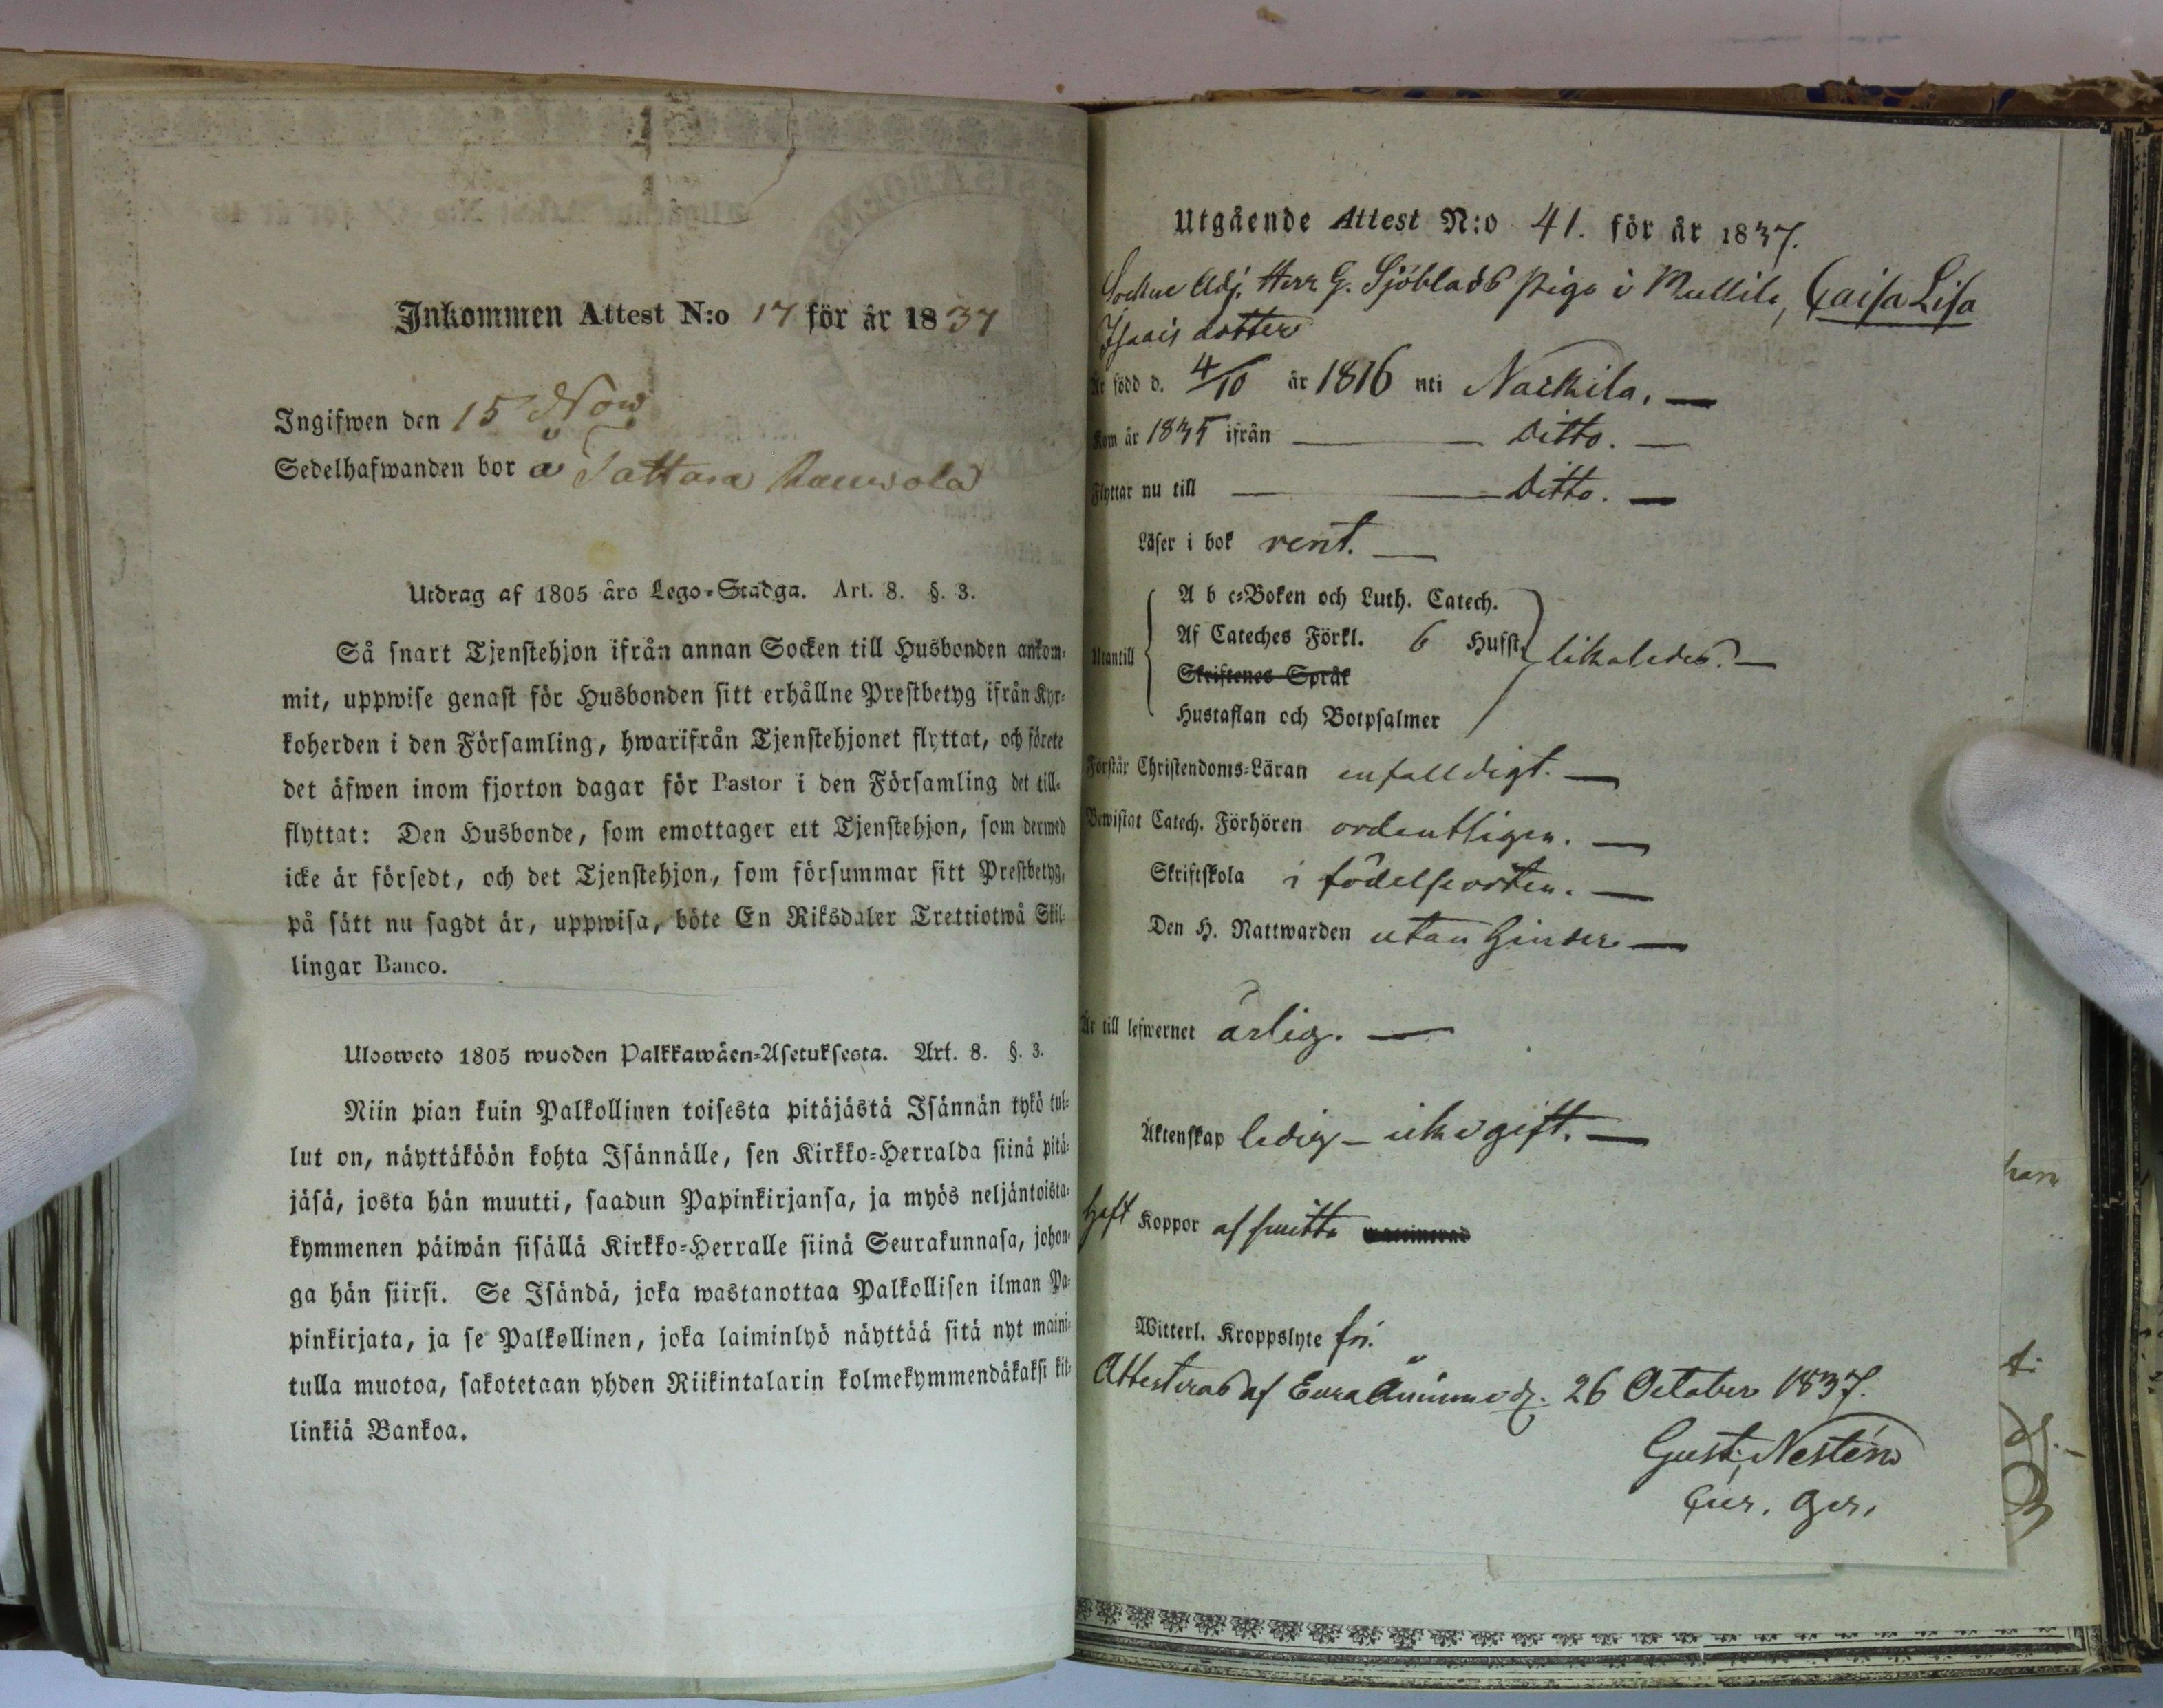 Inkommen Attest N:o 17 för år 1837
Ingifwen den 15 Now
Sedelhafwanden bor a Tattara
Utdrag af 1805 års Lego-Stadga. Art. 8. §. 3.
Så snart Tjenstehjon ifrån annan Socken till Husbonden ankom-
mit, uppwise genast för Husbonden sitt erhållne Prestbetyg ifrån Kyr-
koherden i den Församling, hwarifrån Tjenstehjonet flyttat, och förete
det äfwen inom fjorton dagar för Pastor i den Församling det till-
flyttat: Den Husbonde, som emottager ett Tjenstehjon, som dermed
icke är försedt, och det Tjenstehjon, som försummar sitt Prestbetyg,
på sätt nu sagdt är, uppwisa, böte En Riksdaler Trettiotwå Skil-
lingar Banco.
Ulosweto 1805 wuoden Palkkawäen-Asetuksesta. Art. 8. §. 3.
Niin pian kuin Palkollinen toisesta pitäjästä Isännän tykö tul-
lut on, näyttäköön kohta Isännälle, sen Kirkko-Herralda siinä pitä-
jäsä, josta hän muutti, saadun Papinkirjansa, ja myös neljäntoista-
kymmenen päiwän sisällä Kirkko-Herralle siinä Seurakunnasa, johon-
ga hän siirsi. Se Isändä, joka wastanottaa Palkollisen ilman Pa-
pinkirjata, ja se Palkollinen, joka laiminlyö näyttää sitä nyt maini-
tulla muotoa, sakotetaan yhden Riikintalarin kolmekymmendäkaksi kil-
linkiä Bankoa.
Utgående Attest N:o 41. för år 1837.
Sockne Adj. Herr G. Sjöblads piga i Mullila, Caisa Lisa
Isaacs dotter
Är född d. 4/10 år 1816 uti Nackila. —
Kom år 1835 ifrån — Ditto. —
Flyttar nu till — Ditto. —
Läser i bok rent. —
Utantill
A b c-Boken och Luth. Catech.
Af Cateches Förkl. 6 Husst.
Skriftenes Språk
Hustaflan och Botpsalmer
likaledes. —
Förstår Christendoms-Läran enfalldigt. —
Bewistat Catech. Förhören ordentligen. —
Skriftskola i födelseorten. —
Den H. Nattwarden utan hinder —
Är till lefwernet ärlig. —
Äktenskap ledig — icke gift. —
haft Koppor af smitta
Witterl. Kroppslyte fri.
Attesteras af Eura Åminne d. 26 October 1837.
Gust. Nestén